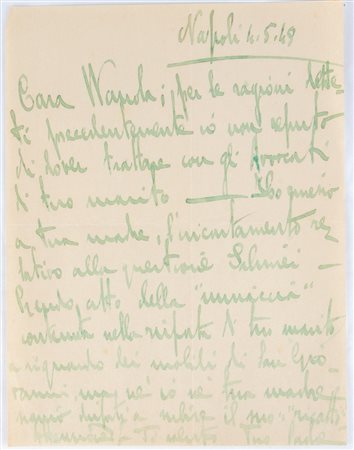 Napoli 4.5.49
Cara Wanda; per le ragioni dette
ti precedentemente io non reputo
di dover trattare con gli avvocati
di tuo marito — Ho
a tua madre, l'incartamento re
lativo alla questione
Prendo atto della "minaccia"
contenuta nella risposta di tuo marito
a riguardo dei mobili di San Gio
vanni, ma nè io nè tua madre
a subire il suo "ricatto"
Tuo padre